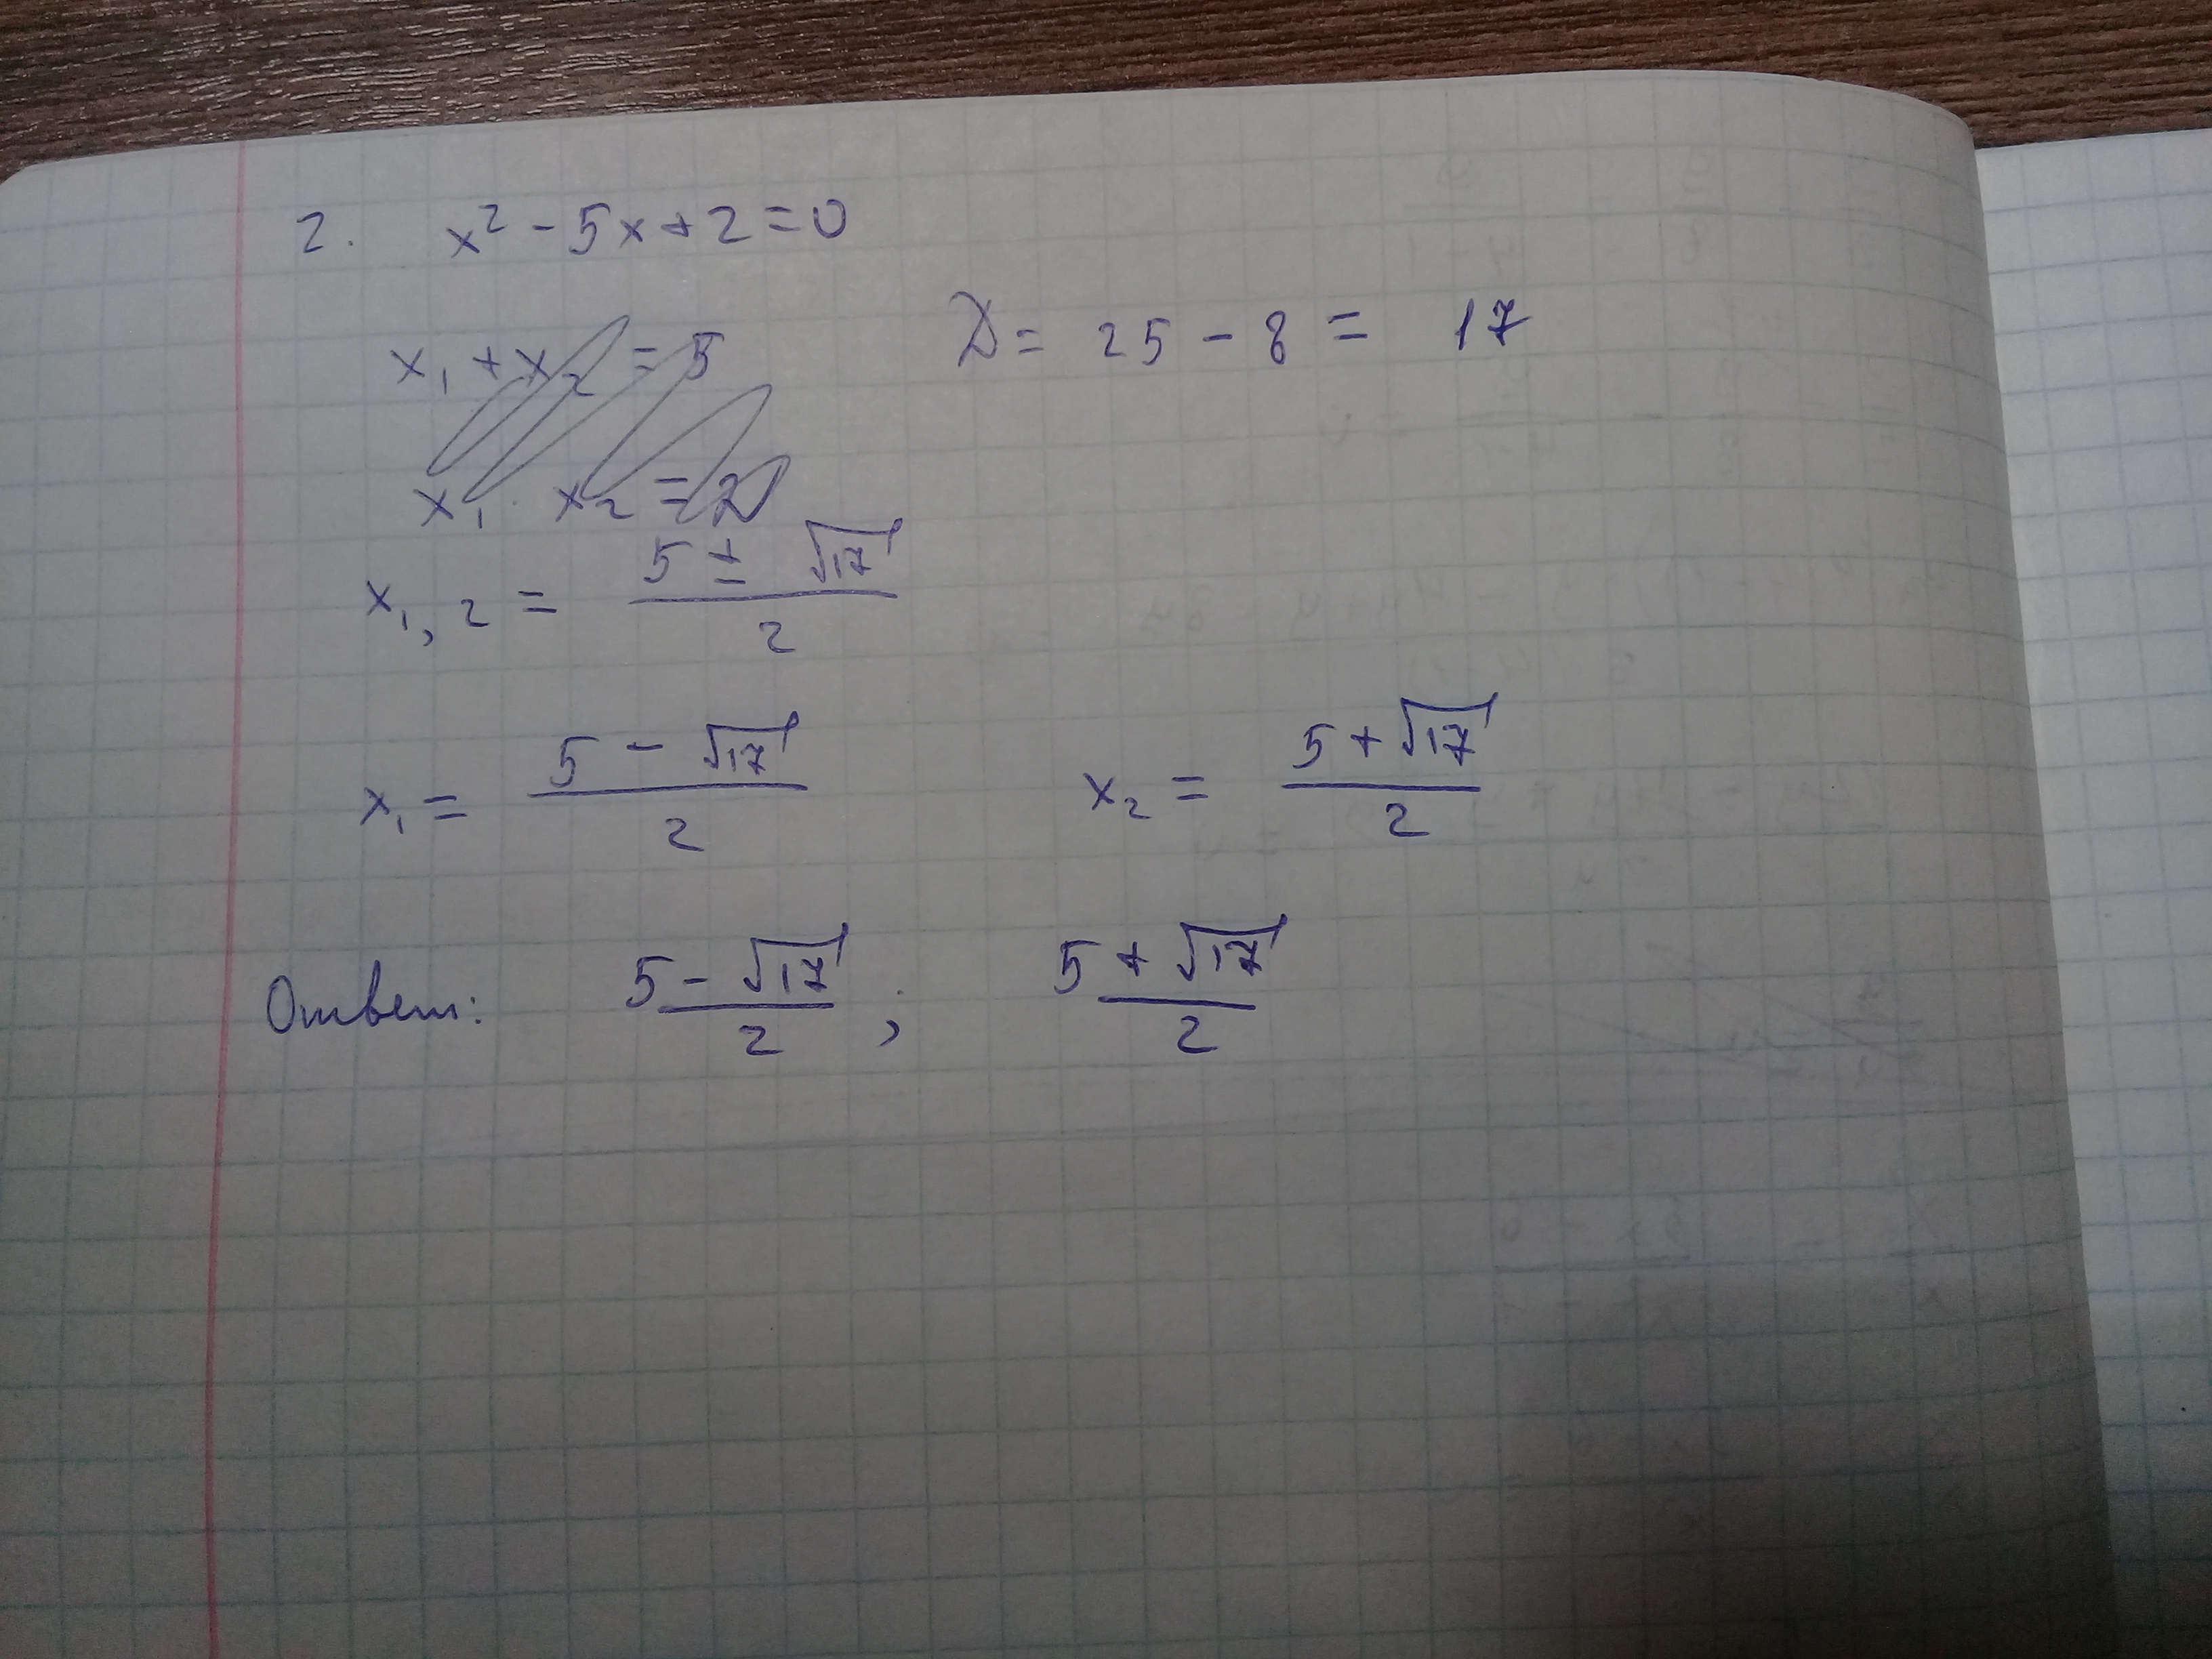 2. x² - 5x + 2 = 0
x₁ + x₂ = 5
D = 25 - 8 = 17
x₁ · x₂ = 2
x₁,₂ = (5 ± √17)/2
x₁ = (5 - √17)/2 x₂ = (5 + √17)/2
Ответ: (5 - √17)/2 ; (5 + √17)/2